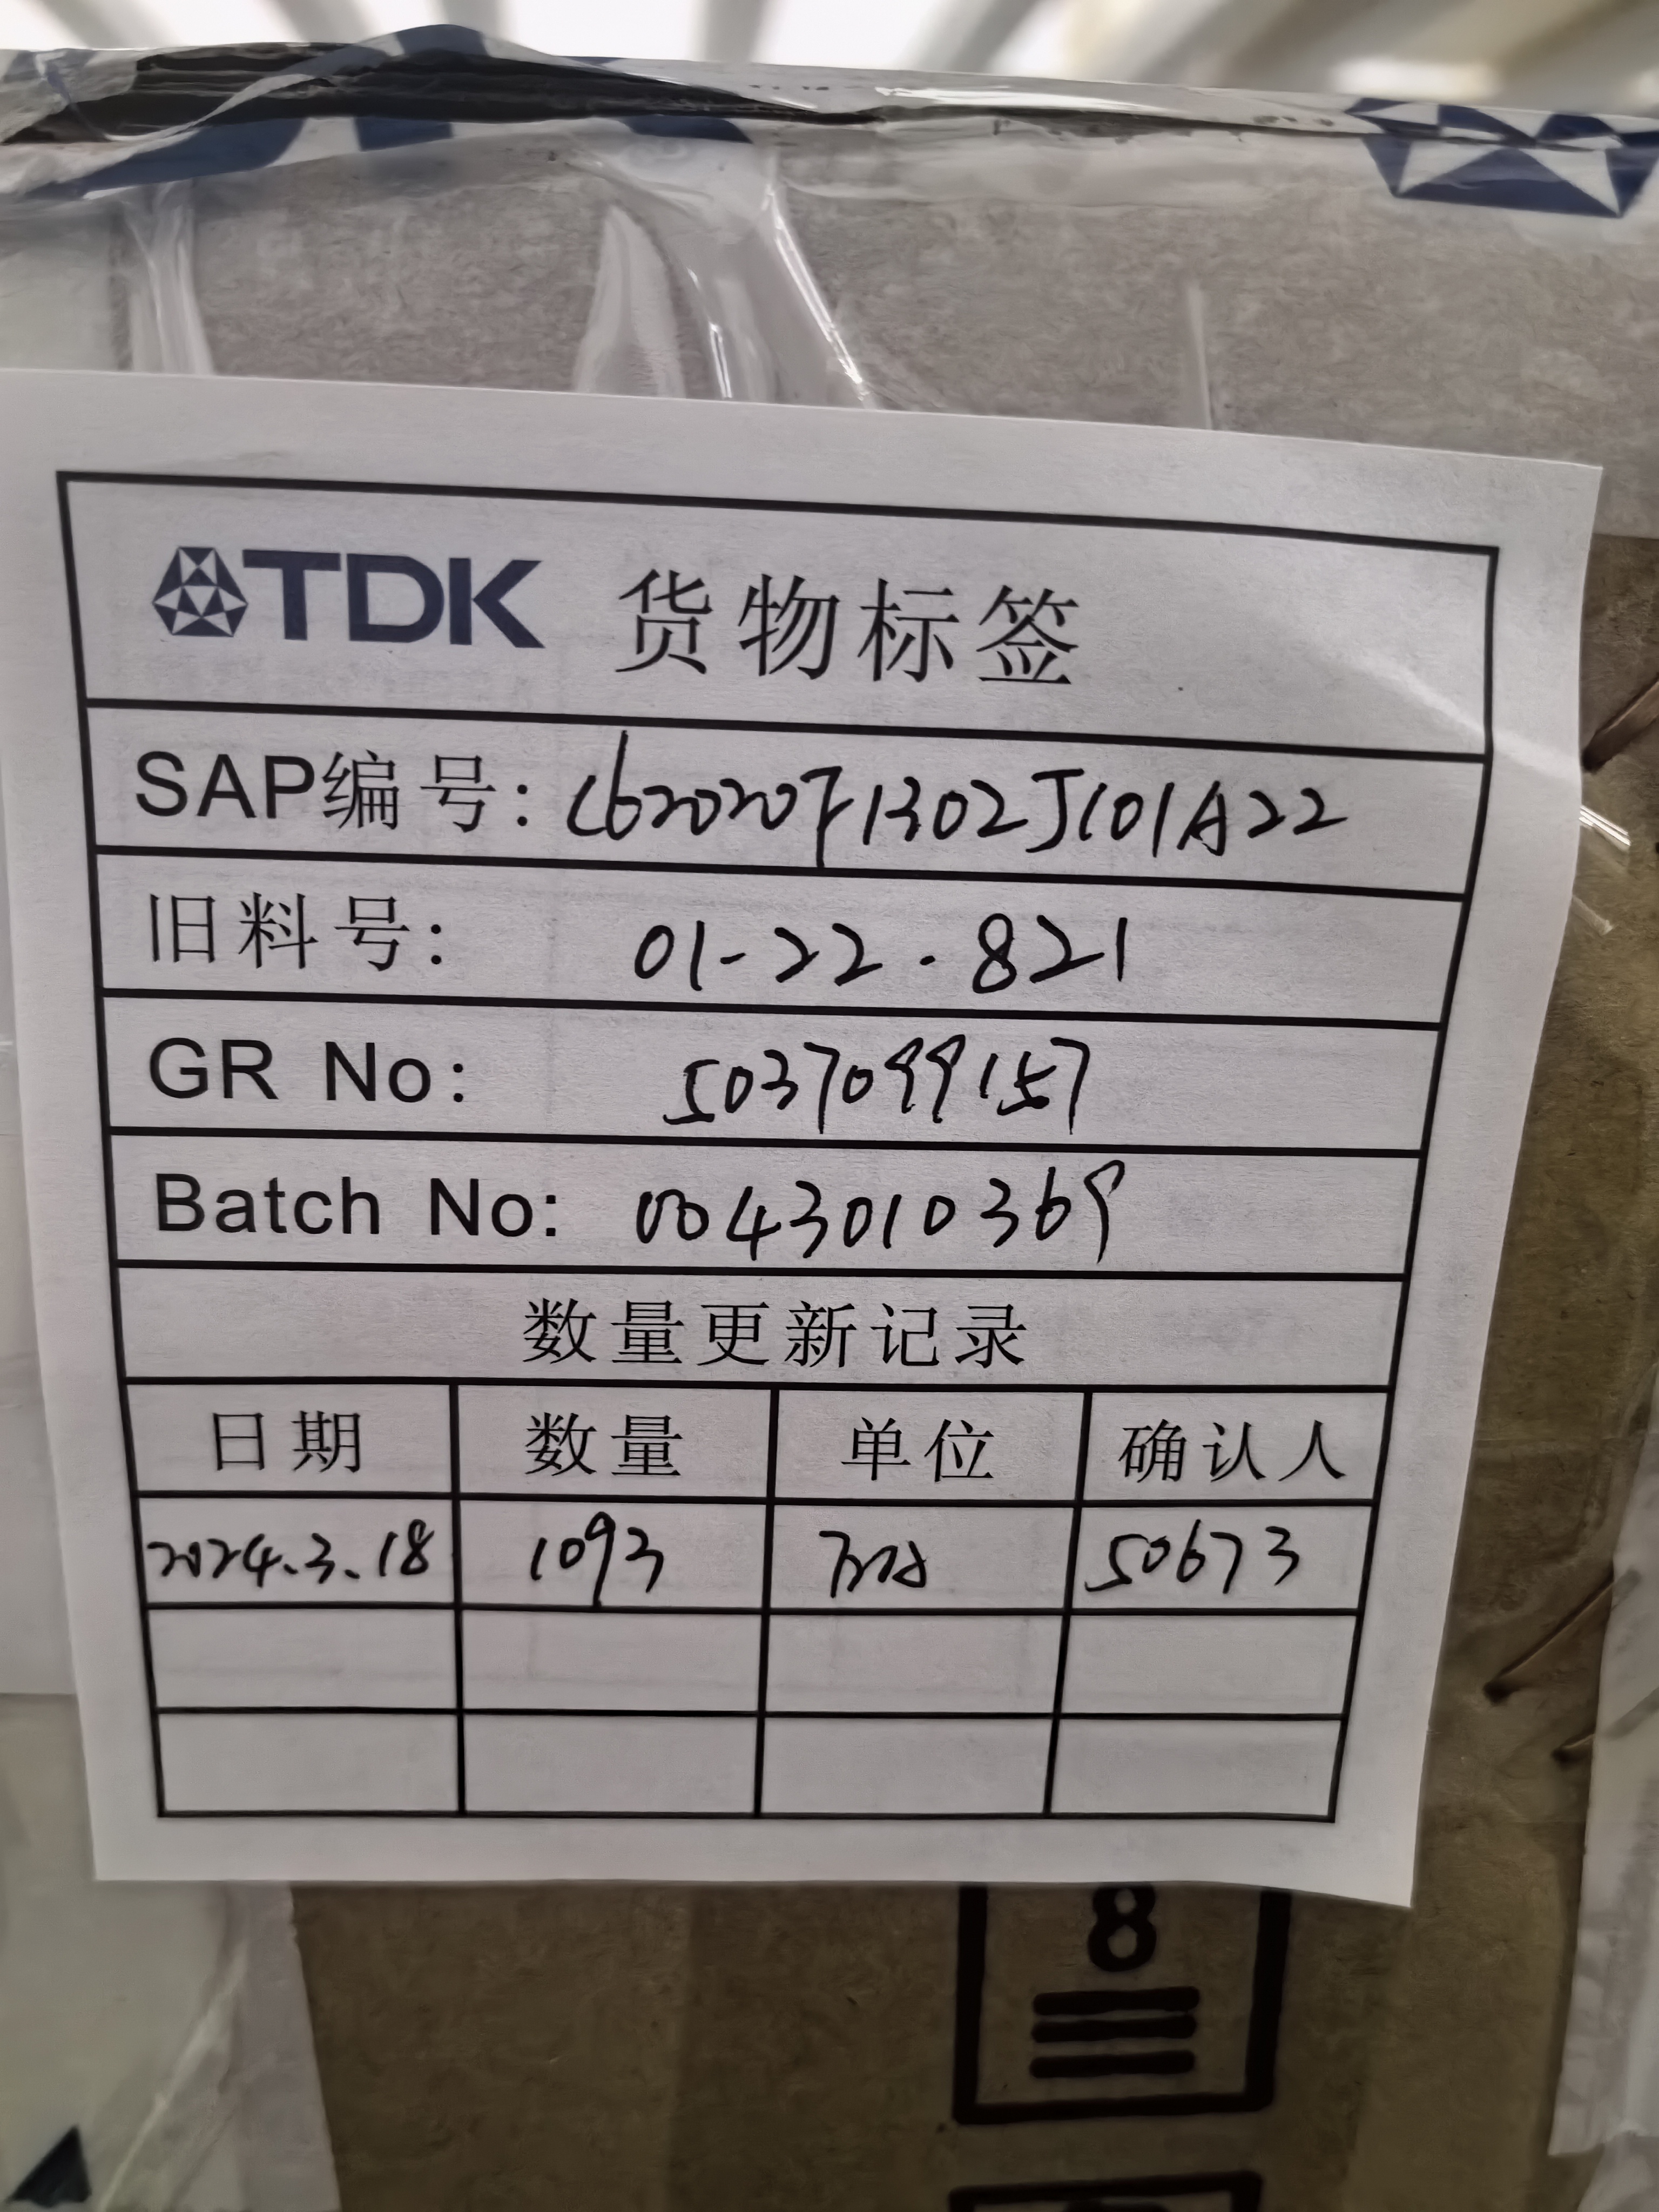 TDK 货物标签
SAP编号: C62020F1302J101A22
旧料号: 01-22-821
GR No: 5037099157
Batch No: 0043010369
数量更新记录
日期 数量 单位 确认人
2024.3.18 1093 50673
8